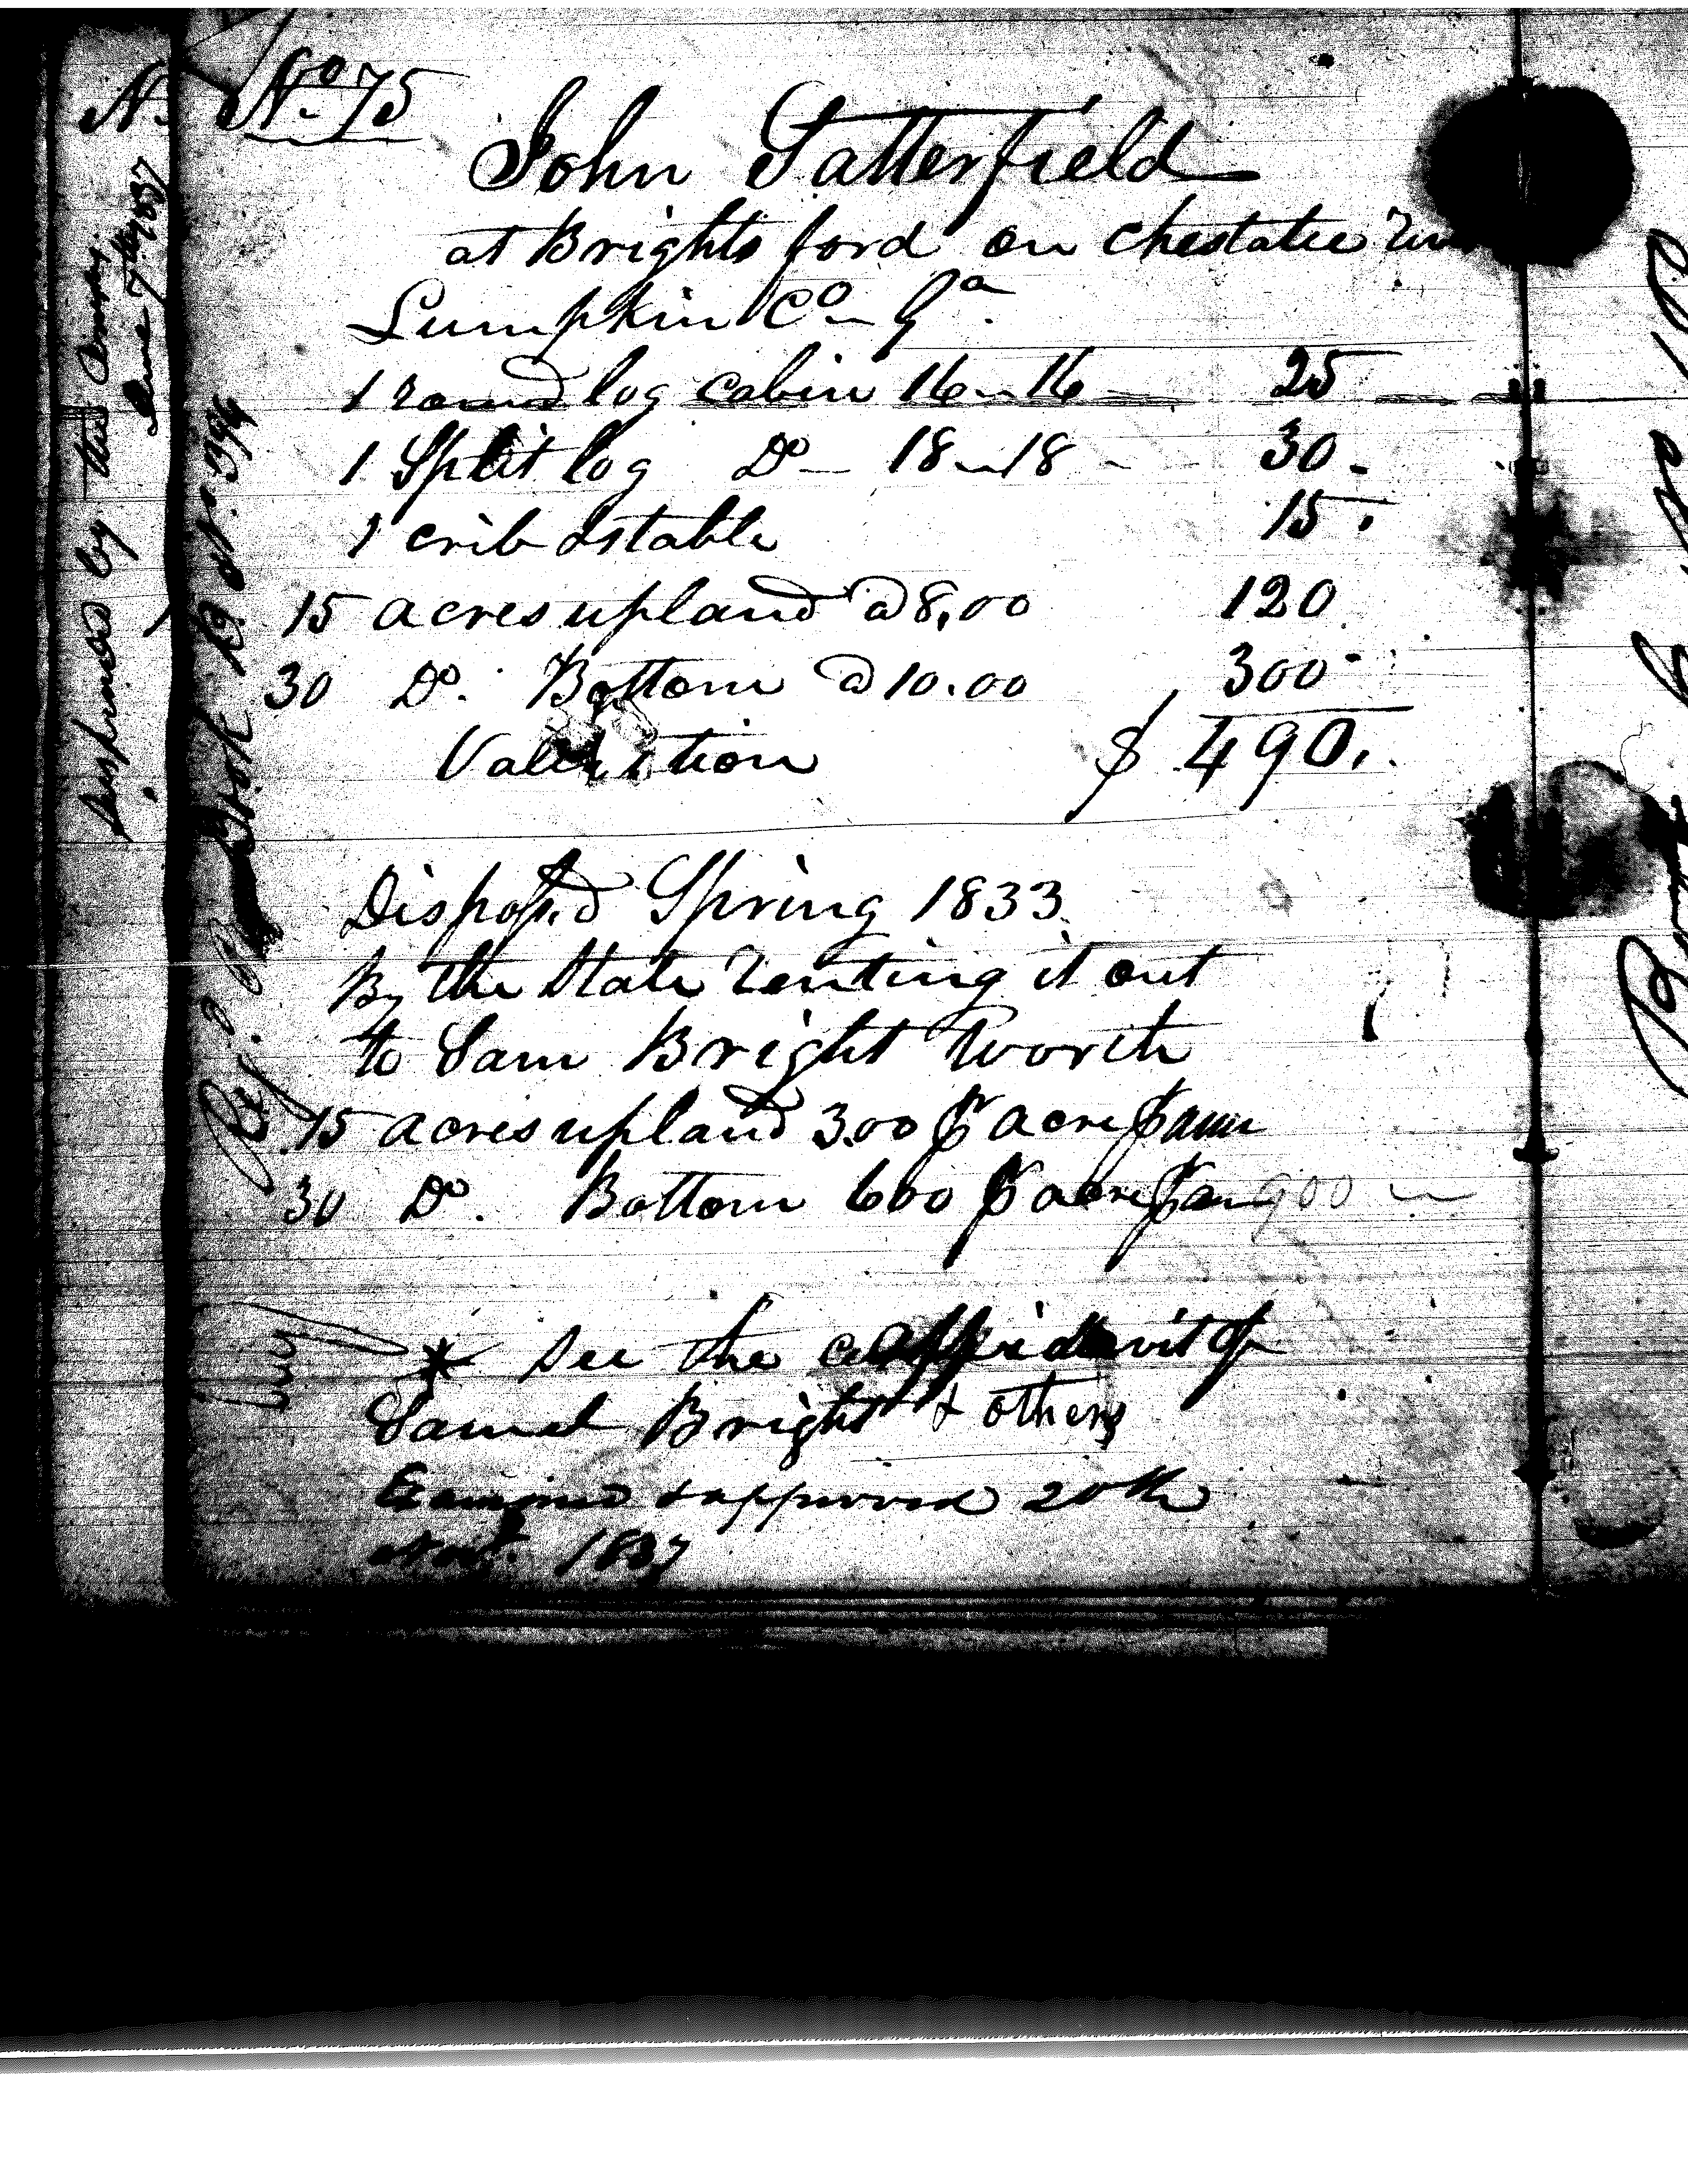 No 75
John Satterfield
at Brights ford on Chestatee
Lumpkin Co Ga.
1 round log cabin 16 - 16 25
1 Split log Do - 18 - 18 - 30 -
1 crib & stable 15.
15 acres upland @ 8.00 120
30 Do. Bottom @ 10.00 300
Valuation $ 490.
Disposed Spring 1833
By the State Renting it out
to Sam Bright Worth
15 acres upland 3.00 pr acre pr ann
30 Do. Bottom 600 pr acre pr an 900
* See the affidavit of
Samel Bright & others
Examined & approved 20th
Novr. 1837
Book B at No. 394
by this
June 7th 1837